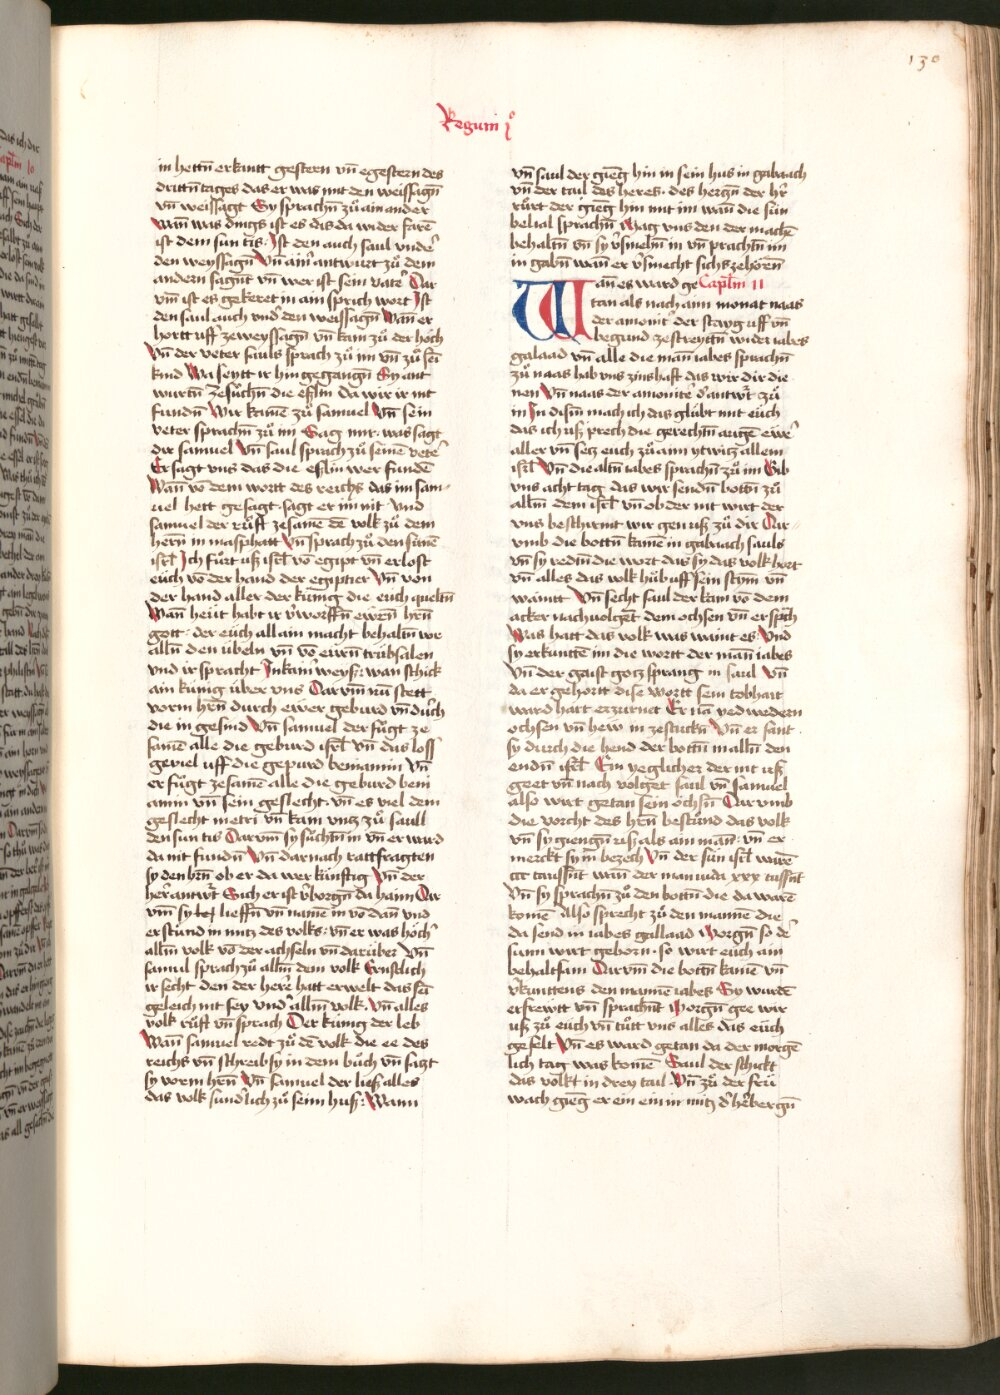 130
Regum j
in hettn̄ erkantt gestern vn̄ egestern des
drittn̄ tages das er was mit den weissagn̄
vn̄ weissagt Sy sprachn̄ zů ain ander
Wān was dings ist es das da wider farē
ist dem sun tis · Ist den auch saul vnder
den weyssagn̄ Vn̄ ainr̄ antwurt zů dem
andern sagnt vn̄ wer ist sein vater Dar
vm̄ ist es gekeret in ain sprich wort Ist
den saul auch vnd' den weissagn̄ Wan er
hortt uff zeweyssagn̄ vn̄ kam zů der höch
Vn̄ der veter sauls sprach zů im vn̄ zů sēi
kind Wa seytt ir hin gegangn̄ Sy ant
wurtn̄ zesůchn̄ die eslin Da wir ir nit
fundn̄ Wir kamē zů samuel Vn̄ sein
veter sprachn̄ zů im Sag mir · was sagt
dir samuel Vn̄ saul sprach zů seinē vete'
Er sagt vns das die eslin wer fundē
Wān vō dem wortt des reichs das im sam
uel hett gesagt · sagt er im nit · Vnd
samuel der růft zesamē de volk zů dem
hern̄ in masphatt Vn̄ sprach zů den sunē
isrl̄ Ich fůrt uß isrl̄ vō egipt vn̄ erlost
euch vō der hand der egiptier Vn̄ von
der hand aller der kunig die euch queltn̄
Wān heut habt ir v'worffn̄ ewrn̄ hrn̄
gott · der euch allain macht behaltn̄ vor
alln̄ den übeln vn̄ vō eurn̄ trübsalen
vnd ir spracht In kain' weyß : wan schick
ain kunig über vns Darvm̄ nu stett
vorm hrn̄ durch ewer geburd vn̄ durch
die in gesind Vn̄ samuel der fügt ze
samē alle die geburd isrl̄ Vn̄ das loss
geviel uff die gepurd beniamin Vn̄
er fügt zesamē alle die geburd beni
amin vn̄ sein geslecht · vn̄ es viel dem
geslecht metri vn̄ kam vntz zů saull
den sun tis Darvm̄ sy sůchtn̄ in vn̄ er ward
da nit fundn̄ Vn̄ darnach rattfragten
sy den hrn̄ ob er da wer kunftig Vn̄ der
her antwrt Sich er ist v'borgn̄ da haim Dar
vm̄ sy lieffn̄ vn̄ namē in vō dān vnd
er stund in mitz des volks · vn̄ er was höch'
allm̄ volk vō der achseln vn̄ darüber Vn̄
samul sprach zů allm̄ dem volk Ernstlich
ir secht den der here hatt erwelt das sei
geleich nit sey vnd' allm̄ volk · Vn̄ alles
volk růft vn̄ sprach Der kunig der leb
Wān samuel redt zů dē volk die ee des
reichs vn̄ schreib sy in dem bůch vn̄ satzt
sy vorm hrn̄ Vn̄ samuel der ließ alles
das volk sundlich zů seim huß : Wann
vn̄ saul der gieng hin in sein hus in gabaach
vn̄ der tail des heres · des hergn̄ der hr̄
růrt der gieng hin mit im wan̄ die sün
belial sprachn̄ Mag vns den der machē
behaltn̄ vn̄ sy v'smehn̄ in vn̄ prachtn̄ im
in gabn̄ wan̄ er v'smecht sich zehören
Wan̄ es ward ge Caplm̄ 11
tan als nach aim monat naas
der amonit' der staig uff vn̄
begund zestreyttn̄ wider iabes
galaad vn̄ alle die man iabes sprachn̄
zů naas hab vns zinshaft das wir dir die
nen Vn̄ naas der amonite d' antwrt zů
in In disn̄ mach ich das glübt mit euch
das ich uß prech die gerechtn̄ augē ewe'
aller vn̄ setz euch zů aim ytwitz allem
isrl̄ Vn̄ die altn̄ iabes sprachn̄ zů im Gib
vns acht tag das wir sendn̄ bottn̄ zů
allm̄ dem isrl̄ vn̄ ob der nit wirt der
vns beschirmt wir gen uß zů dir Dar
vmb die bottn̄ kamē in gabaach sauls
vn̄ sy redtn̄ die wort das sy das volk hort
vn̄ alles das volk hůb uff sein stym vn̄
waintt Vn̄ secht saul der kam vō dem
acker nachvolgent dem ochsen vn̄ er sprach
Was hatt das volk was waint es · Vnd
sy erkuntē im die wortt der man iabes
Vn̄ der gaist gotz sprang in saul Vn̄
da er gehortt dise wortt sein tobhait
ward hart erzürnet Er nā yedwedern
ochsen vn̄ hew in zestuckn̄ Vn̄ er sant
sy durch die hend der bottn̄ in alln̄ den
endn̄ isrl̄ Ein yeglicher der nit uß
geet vn̄ nach volget saul vn̄ samuel
also wirt getan sein ochsn̄ Darvmb
die vorcht des hrn̄ bestund das volk
vn̄ sy giengn̄ uß als ain man : vn̄ er
merckt sy in bezech Vn̄ der sün isrl̄ warē
ccc taussnt wan̄ der man iuda xxx tussnt
Vn̄ sy sprachn̄ zů den bottn̄ die da warē
komē Also sprecht zů den mannē die
da send in iabes gallaad Morgn̄ so de'
sunn wirt geborn · so wirt euch ain
behaltsam Darvm̄ die bottn̄ kamē vn̄
v'kunttens den mannē iabes Sy wurdē
erfrewtt vn̄ sprachnt Morgn̄ gee wir
uß zů euch vn̄ tůtt vns alles das euch
gefelt Vn̄ es ward getan da der morgē
lich tag was komē Saul der schickt
das volkt in drey tail Vn̄ zů der frü
wach gieng er ein ein in mitz d' herbergn̄